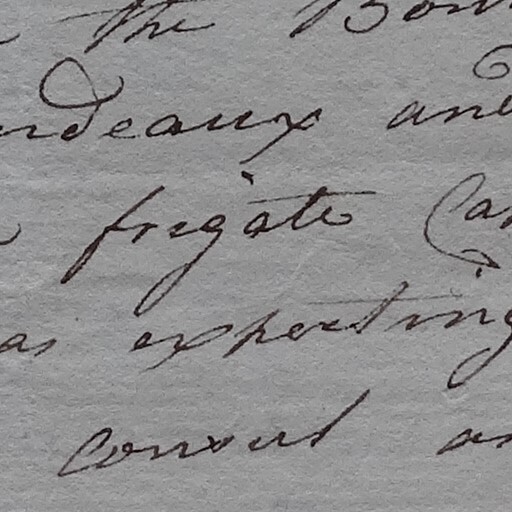 the
deaux and
frigate Ca
as expecting
consul an